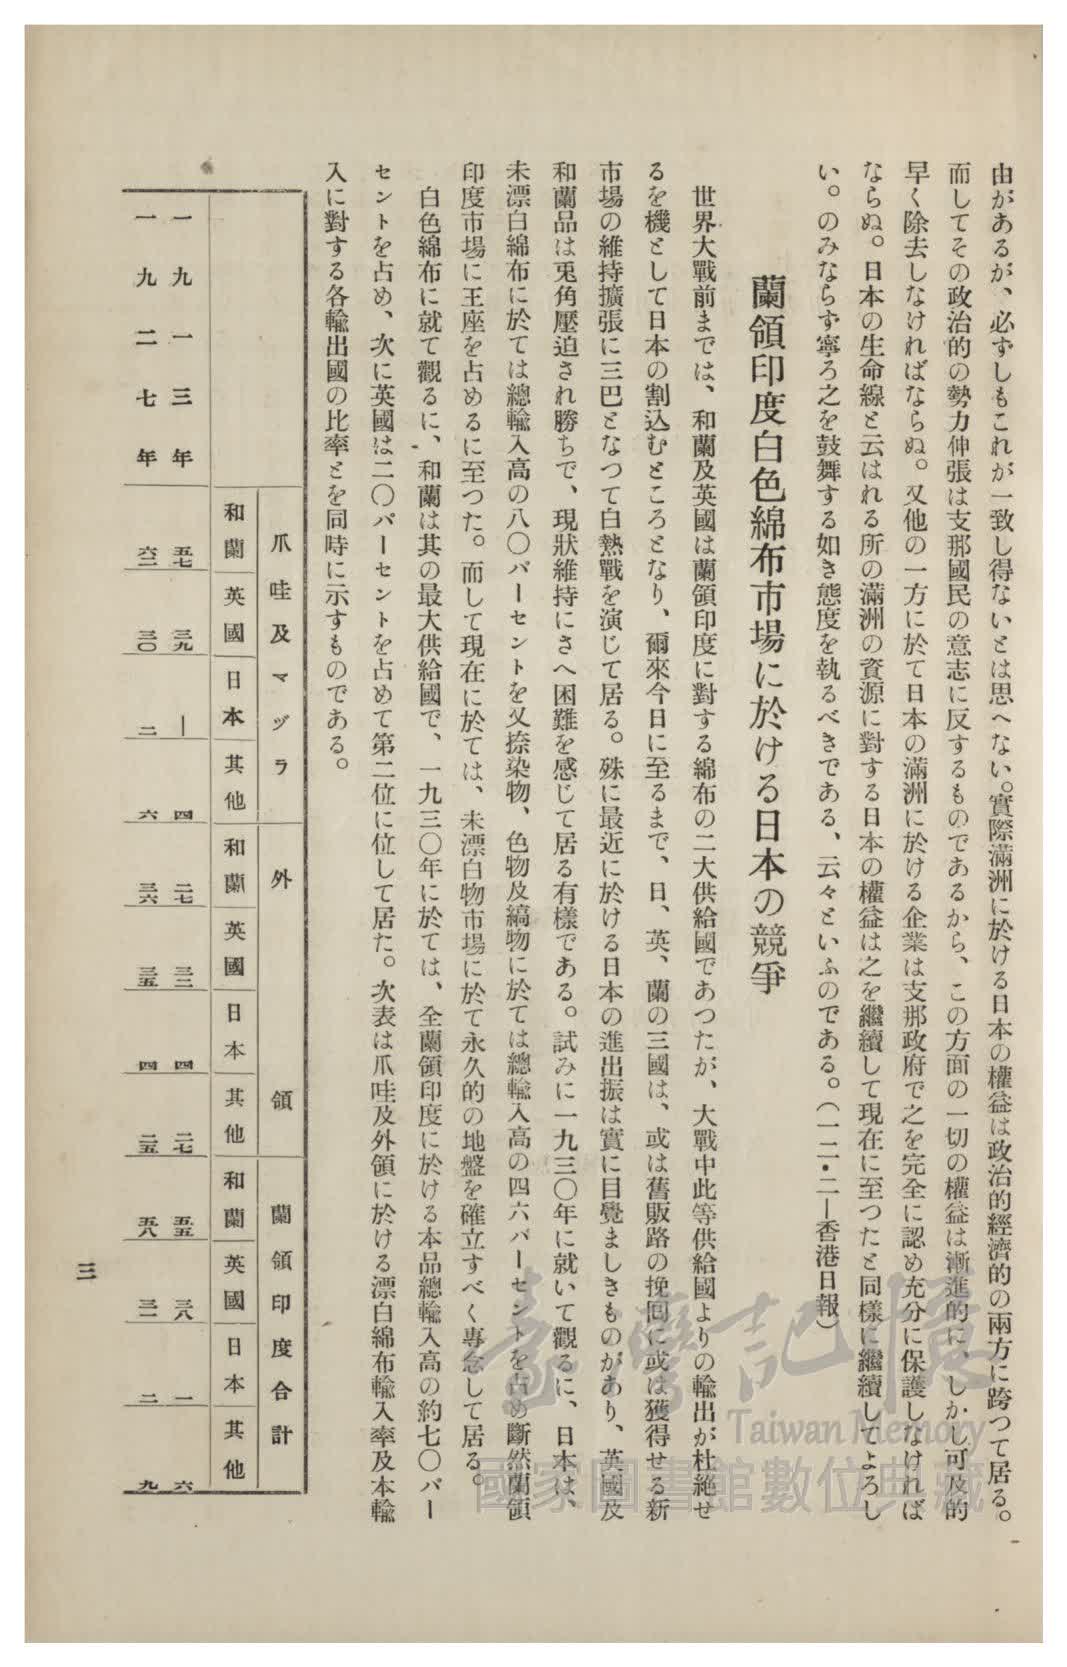 由があるが、必ずしもこれが一致し得ないとは思へない。實際滿洲に於ける日本の權益は政治的經濟的の兩方に跨つて居る。
而してその政治的の勢力伸張は支那國民の意志に反するものであるから、この方面の一切の權益は漸進的に、しかし可及的
早く除去しなければならぬ。又他の一方に於て日本の滿洲に於ける企業は支那政府で之を完全に認め充分に保護しなければ
ならぬ。日本の生命線と云はれる所の滿洲の資源に對する日本の權益は之を繼續して現在に至つたと同樣に繼續してよろし
い。のみならず寧ろ之を鼓舞する如き態度を執るべきである、云々といふのである。（一二・二―香港日報）
蘭領印度白色綿布市場に於ける日本の競爭
世界大戰前までは、和蘭及英國は蘭領印度に對する綿布の二大供給國であつたが、大戰中此等供給國よりの輸出が杜絶せ
るを機として日本の割込むところとなり、爾來今日に至るまで、日、英、蘭の三國は、或は舊販路の挽回に或は獲得せる新
市場の維持擴張に三巴となつて白熱戰を演じて居る。殊に最近に於ける日本の進出振は實に目覺ましきものがあり、英國及
和蘭品は兎角壓迫され勝ちで、現狀維持にさへ困難を感じて居る有樣である。試みに一九三〇年に就いて觀るに、日本は、
未漂白綿布に於ては總輸入高の八〇パーセントを又捺染物、色物及縞物に於ては總輸入高の四六パーセントを占め斷然蘭領
印度市場に王座を占めるに至つた。而して現在に於ては、未漂白物市場に於て永久的の地盤を確立すべく專念して居る。
白色綿布に就て觀るに、和蘭は其の最大供給國で、一九三〇年に於ては、全蘭領印度に於ける本品總輸入高の約七〇パー
セントを占め、次に英國は二〇パーセントを占めて第二位に位して居た。次表は爪哇及外領に於ける漂白綿布輸入率及本輸
入に對する各輸出國の比率とを同時に示すものである。
爪哇及マヅラ 外領 蘭領印度合計
和蘭 英國 日本 其他 和蘭 英國 日本 其他 和蘭 英國 日本 其他
一九一三年 五七 三九 ― 四 二七 三二 四 二七 五五 三八 一 六
一九二七年 六二 三〇 二 六 三六 三五 四 二五 五八 三一 二 九
三
臺灣記憶
Taiwan Memory
國家圖書館數位典藏